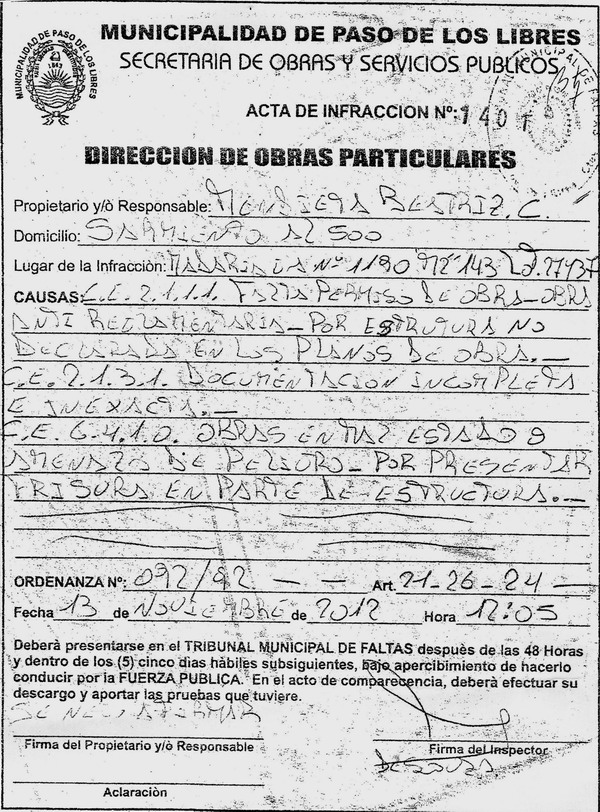 MUNICIPALIDAD DE PASO DE LOS LIBRES
MUNICIPALIDAD DE PASO DE LOS LIBRES
SECRETARIA DE OBRAS Y SERVICIOS PUBLICOS
ACTA DE INFRACCION Nº: 1401
DIRECCION DE OBRAS PARTICULARES
Propietario y/ò Responsable: MENDIETA BEATRIZ. C.
Domicilio: SARMIENTO AL 500
Lugar de la Infracciòn: MADARIAGA Nº 1190 MZ 143
CAUSAS: C.E. 2.1.1.1. FALTA PERMISO DE OBRA - OBRA
ANTI REGLAMENTARIA - POR ESTRUTURA NO
DECLARADA EN LOS PLANOS DE OBRA. -
C.E. 2.1.3.1. DOCUMENTACION INCOMPLETA
E INEXACTA. -
C.E. 6.4.1.0. OBRAS EN MAL ESTADO O
AMENAZA DE PELIGRO - POR PRESENTAR
FRISURA EN PARTE DE - ESTRUCTURA. -
ORDENANZA Nº: 092/92 - - Art. 21-26-24 -
Fecha 13 de NOVIEMBRE de 2012 Hora 12:05
Deberà presentarse en el TRIBUNAL MUNICIPAL DE FALTAS despuès de las 48 Horas
y dentro de los (5) cinco dìas hàbiles subsiguientes, bajo apercibimiento de hacerlo
conducir por la FUERZA PUBLICA. En el acto de comparecencia, deberà efectuar su
descargo y aportar las pruebas que tuviere.
SE NEGO A FIRMAR
Firma del Propietario y/ò Responsable
Firma del Inspector
DE SOUZA
Aclaraciòn